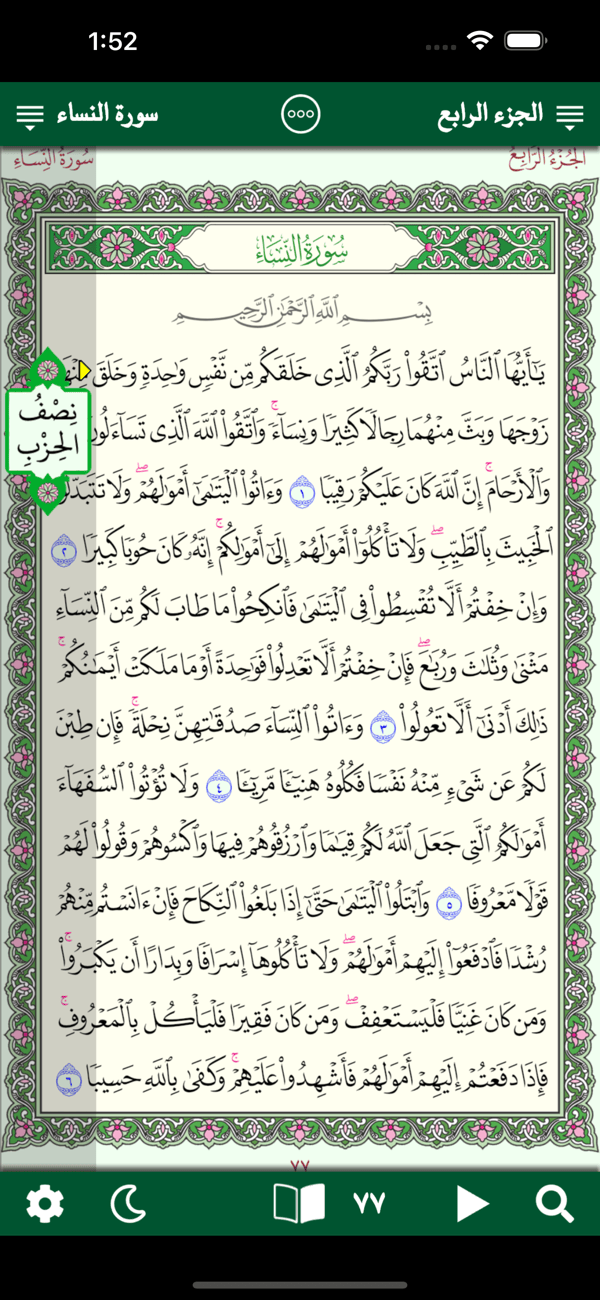 1:52
الجزء الرابع
سورة النساء
الجُزْءُ الرَّابِعُ
سُورَةُ النِّسَاءِ
سُورَةُ النِّسَاءِ
بِسْمِ اللَّهِ الرَّحْمَٰنِ الرَّحِيمِ
يَٰٓأَيُّهَا ٱلنَّاسُ ٱتَّقُوا۟ رَبَّكُمُ ٱلَّذِى خَلَقَكُم مِّن نَّفْسٍ وَٰحِدَةٍ وَخَلَقَ مِنْهَا
زَوْجَهَا وَبَثَّ مِنْهُمَا رِجَالًا كَثِيرًا وَنِسَآءً ۚ وَٱتَّقُوا۟ ٱللَّهَ ٱلَّذِى تَسَآءَلُونَ
نِصْفُ
الحِزْبِ
وَٱلْأَرْحَامَ ۚ إِنَّ ٱللَّهَ كَانَ عَلَيْكُمْ رَقِيبًا ١ وَءَاتُوا۟ ٱلْيَتَٰمَىٰٓ أَمْوَٰلَهُمْ ۖ وَلَا تَتَبَدَّلُوا۟
ٱلْخَبِيثَ بِٱلطَّيِّبِ ۖ وَلَا تَأْكُلُوٓا۟ أَمْوَٰلَهُمْ إِلَىٰٓ أَمْوَٰلِكُمْ ۚ إِنَّهُۥ كَانَ حُوبًا كَبِيرًا ٢
وَإِنْ خِفْتُمْ أَلَّا تُقْسِطُوا۟ فِى ٱلْيَتَٰمَىٰ فَٱنكِحُوا۟ مَا طَابَ لَكُم مِّنَ ٱلنِّسَآءِ
مَثْنَىٰ وَثُلَٰثَ وَرُبَٰعَ ۖ فَإِنْ خِفْتُمْ أَلَّا تَعْدِلُوا۟ فَوَٰحِدَةً أَوْ مَا مَلَكَتْ أَيْمَٰنُكُمْ ۚ
ذَٰلِكَ أَدْنَىٰٓ أَلَّا تَعُولُوا۟ ٣ وَءَاتُوا۟ ٱلنِّسَآءَ صَدُقَٰتِهِنَّ نِحْلَةً ۚ فَإِن طِبْنَ
لَكُمْ عَن شَىْءٍ مِّنْهُ نَفْسًا فَكُلُوهُ هَنِيٓـًٔا مَّرِيٓـًٔا ٤ وَلَا تُؤْتُوا۟ ٱلسُّفَهَآءَ
أَمْوَٰلَكُمُ ٱلَّتِى جَعَلَ ٱللَّهُ لَكُمْ قِيَٰمًا وَٱرْزُقُوهُمْ فِيهَا وَٱكْسُوهُمْ وَقُولُوا۟ لَهُمْ
قَوْلًا مَّعْرُوفًا ٥ وَٱبْتَلُوا۟ ٱلْيَتَٰمَىٰ حَتَّىٰٓ إِذَا بَلَغُوا۟ ٱلنِّكَاحَ فَإِنْ ءَانَسْتُم مِّنْهُمْ
رُشْدًا فَٱدْفَعُوٓا۟ إِلَيْهِمْ أَمْوَٰلَهُمْ ۖ وَلَا تَأْكُلُوهَآ إِسْرَافًا وَبِدَارًا أَن يَكْبَرُوا۟ ۚ
وَمَن كَانَ غَنِيًّا فَلْيَسْتَعْفِفْ ۖ وَمَن كَانَ فَقِيرًا فَلْيَأْكُلْ بِٱلْمَعْرُوفِ ۚ
فَإِذَا دَفَعْتُمْ إِلَيْهِمْ أَمْوَٰلَهُمْ فَأَشْهِدُوا۟ عَلَيْهِمْ ۚ وَكَفَىٰ بِٱللَّهِ حَسِيبًا ٦
٧٧
٧٧